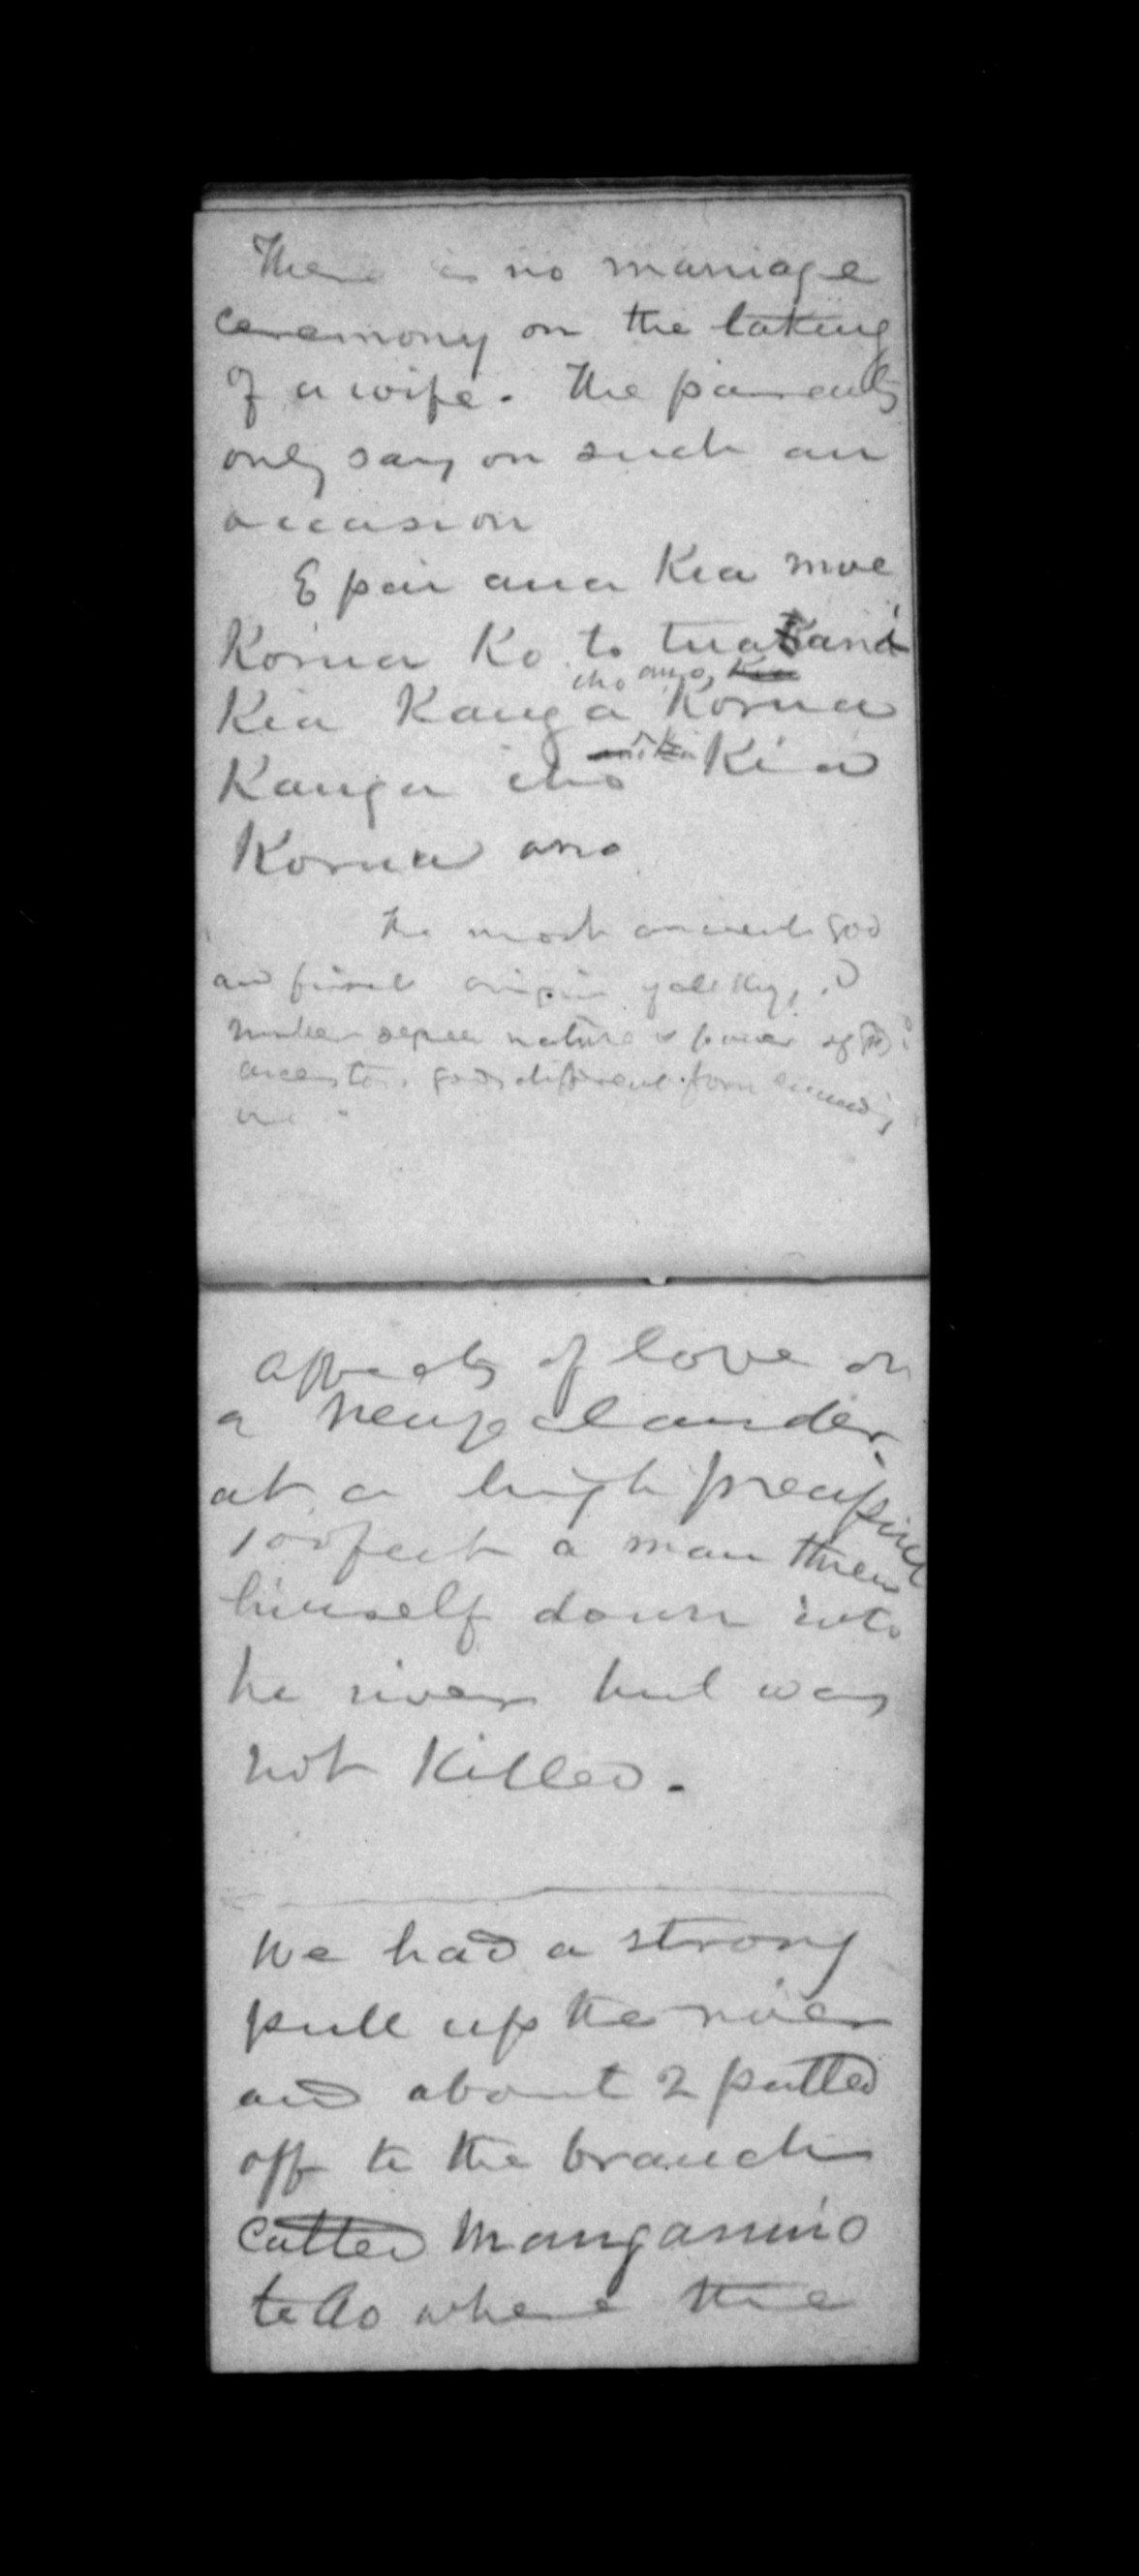 There is no marriage
ceremony on the taking
of a wife. The parents
only say on such an
occasion
E pai ana Kia moe
Korua Ko to tuakana
iho ano,
Kia Kanga Korua
Kanga iho Kia
Korua ano
The most ancient god
and first origin of all things
number nature & power of
ancestors gods different form
affects of love on
a newzealander
at a high precipice
100 feet a man threw
himself down into
he river but was
not Killed.
We had a strong
pull up the river
and about 2 pulled
off to the branch
called Manganuio
te Ao where the